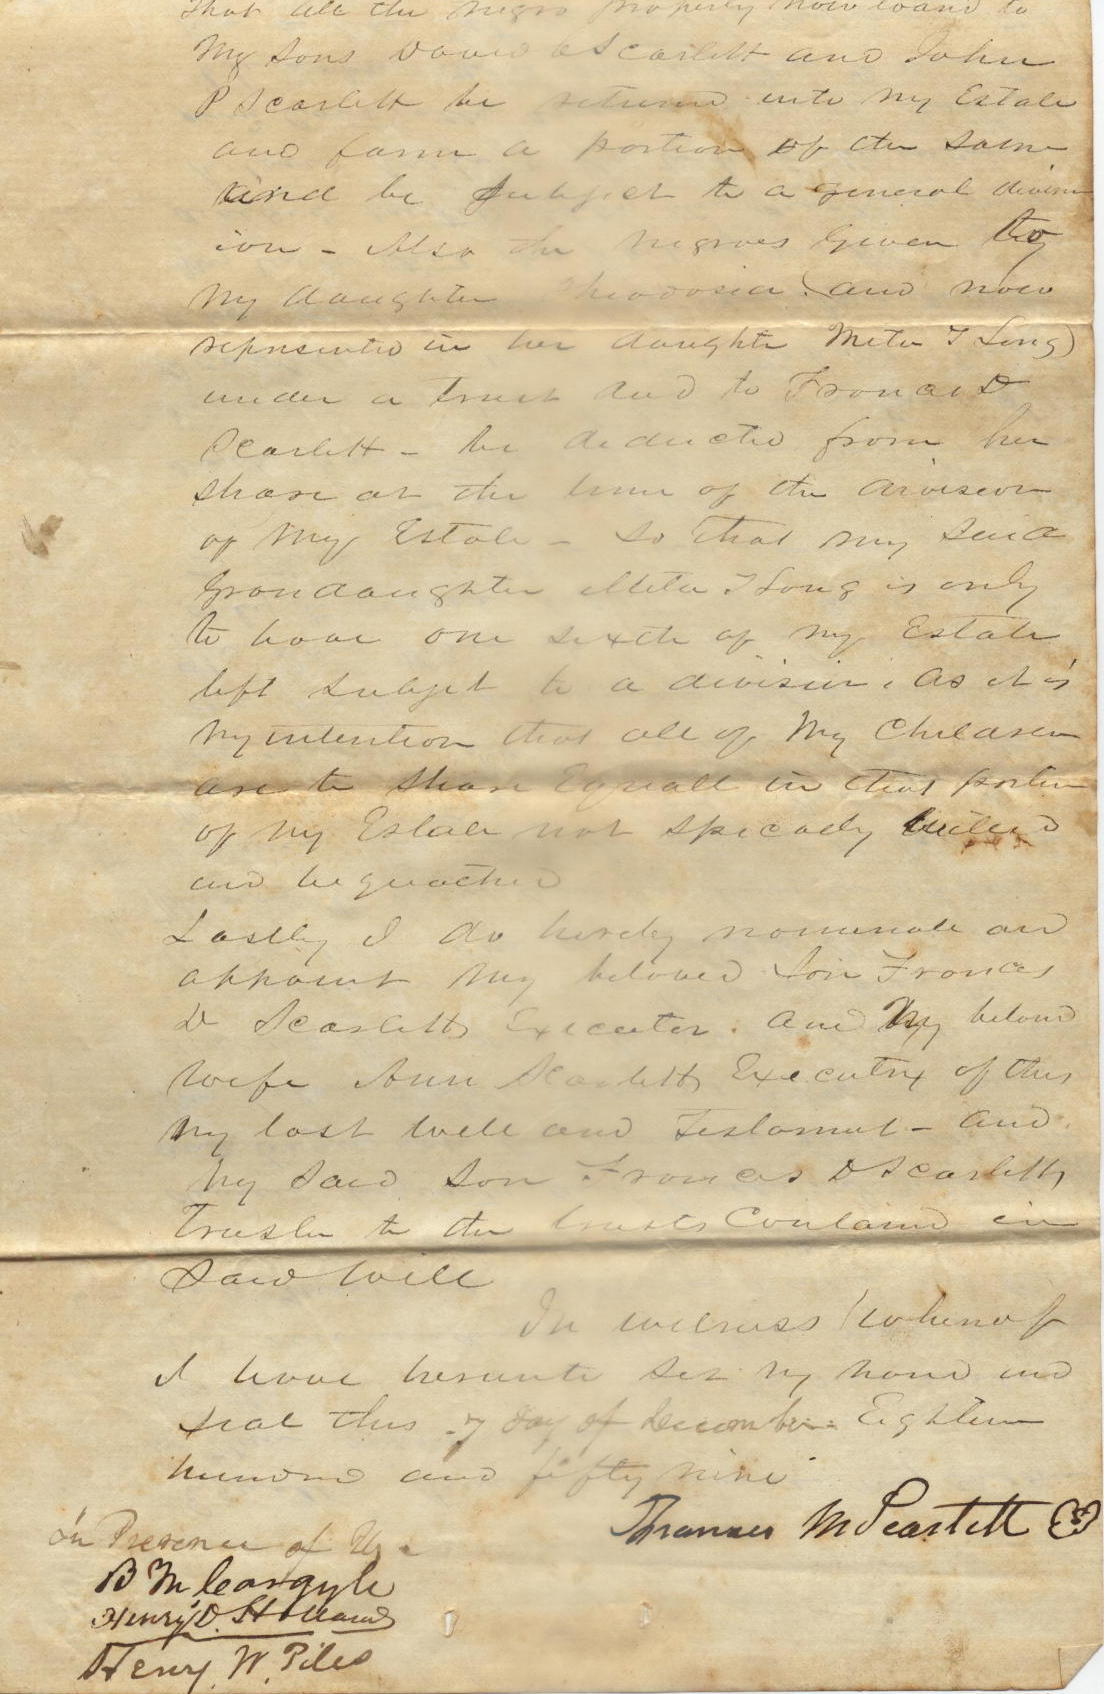 that all the negro property now loand to
My Sons David A Scarlett and John
P Scarlett be returned into my Estate
and form a portion of the same
and be subject to a general divis
ion - Also the negroes Given to
my daughter Theodosia (and now
represented in her daughter Meta T Long)
under a trust deed to Francis D
Scarlett - be deducted from her
share at the time of the division
of my Estate - so that my said
Grandaughter Meta T Long is only
to have one sixth of my Estate
left subjet to a division, as it is
my intention that all of My Children
are to share Equall in that portion
of my Estate not specialy willed
and bequeathed
Lastly I do hereby nominate and
appoint my beloved Son Francis
D Scarlett Executor. and My beloved
wife Ann Scarlett Executrix of this
my last will and Testament - and
my said son Francis D Scarlett
Trustee to the trusts Contained in
said will
In witness whereof
I have hereunto set my hand and
seal this 7 day of December Eighteen
hundred and fifty nine
Francis M Scarlett
In Presence of Us
B M Cargyle
Henry D. Holland
Henry W. Piles